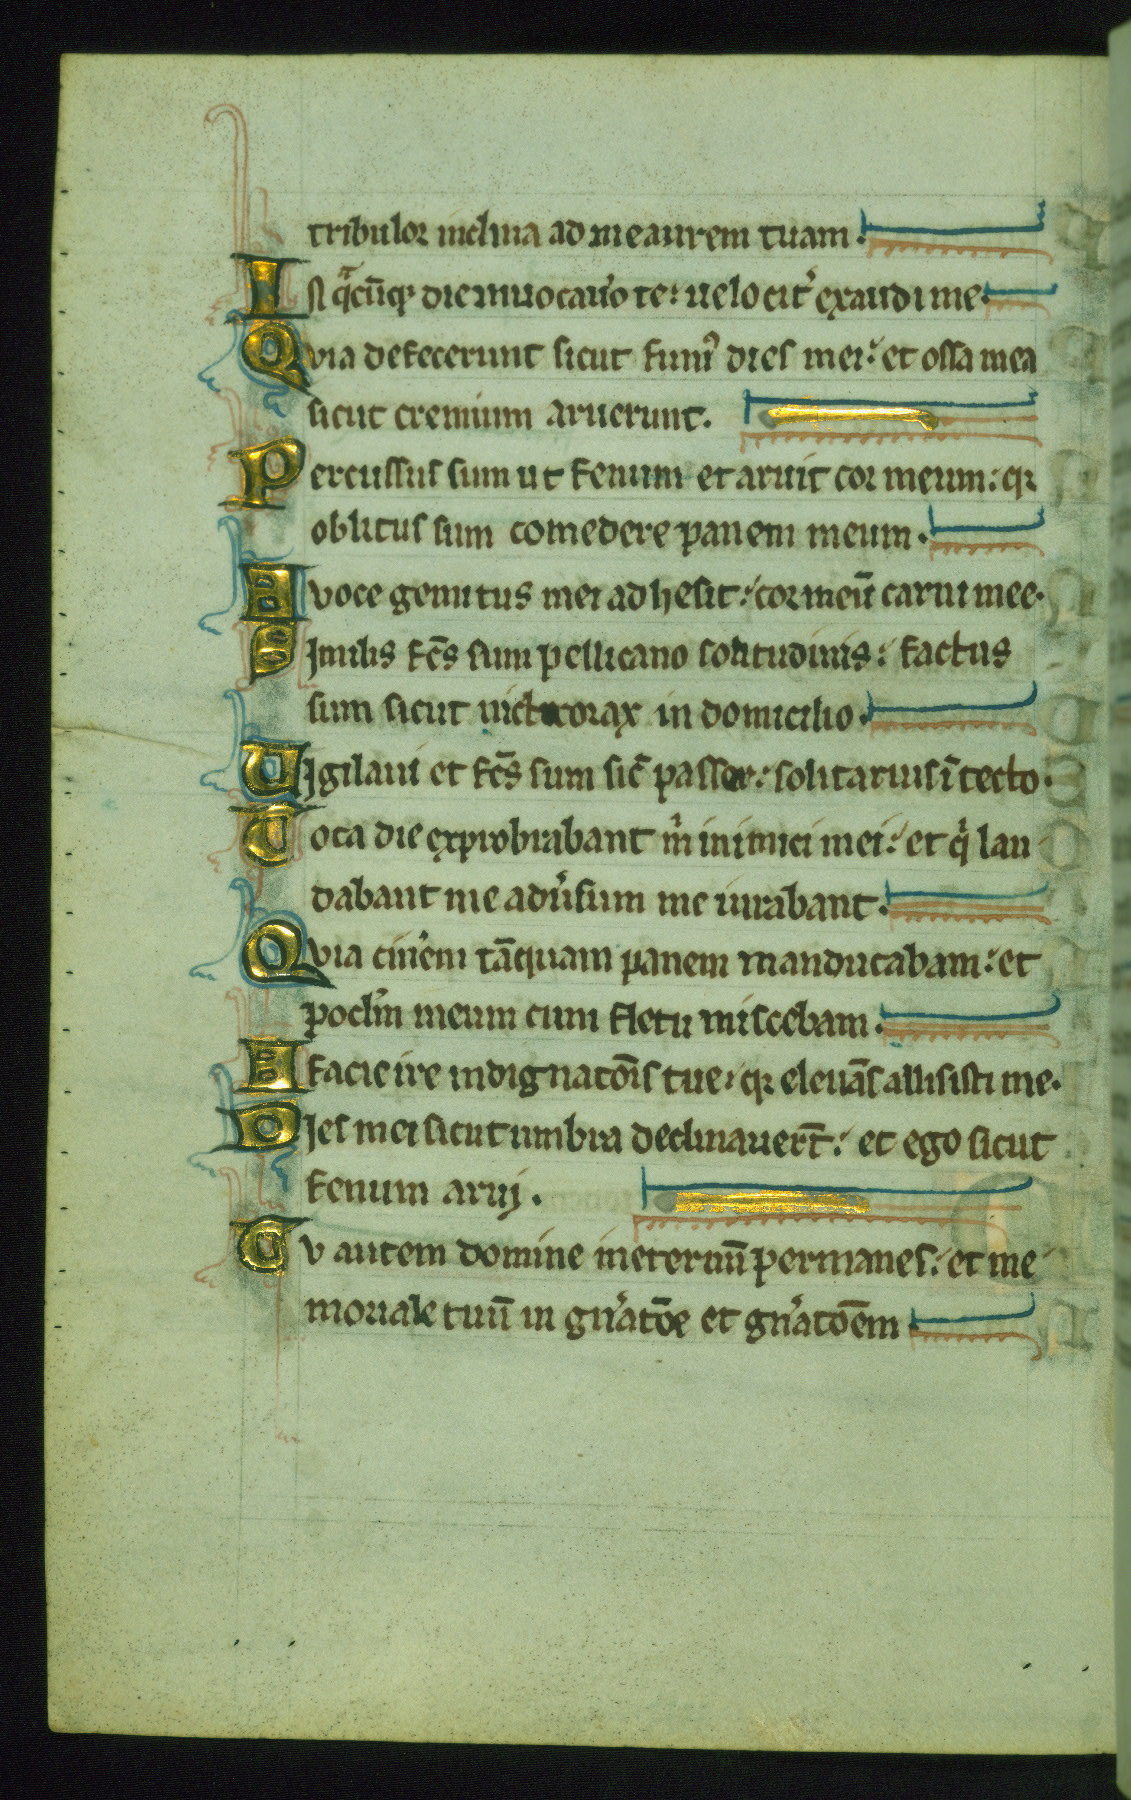 tribulor inclina ad me aurem tuam.
In q̄cūq; die inuocau'o te: uelocit' exaudi me.
Quia defecerunt sicut fum' dies mei: et ossa mea
sicut cremium aruerunt.
Percussus sum ut fenum et aruit cor meum: q;
oblitus sum comedere panem meum.
A voce gemitus mei adhesit: cor meū carni mee.
Similis fc̄s sum pellicano solitudinis: factus
sum sicut nicticorax in domicilio.
Vigilaui et fc̄s sum sic̄ passer: solitarius ī tecto.
Tota die exprobrabant m̄ inimici mei: et q' lau
dabant me adu'sum me iurabant.
Quia cin'em tāquam panem manducabam: et
poclm̄ meum cum fletu miscebam.
A facie ire indignatōis tue: q; eleuās allisisti me.
Dies mei sicut umbra declinauert̄: et ego sicut
fenum arui.
Tu autem domine in eternū permanes: et me
moriale tuū in gn'atōe et gn'atōem.